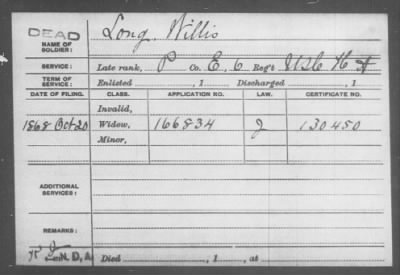 DEAD
NAME OF SOLDIER: Long Willis
SERVICE: Late rank, P Co. E, 6 Reg't USC H A
TERM OF SERVICE: Enlisted , 1 Discharged , 1
DATE OF FILING. CLASS. APPLICATION NO. LAW. CERTIFICATE NO.
Invalid,
1868 Oct 20 Widow, 166834 J 130450
Minor,
ADDITIONAL SERVICES:
REMARKS:
N. D, A Died , 1 , at